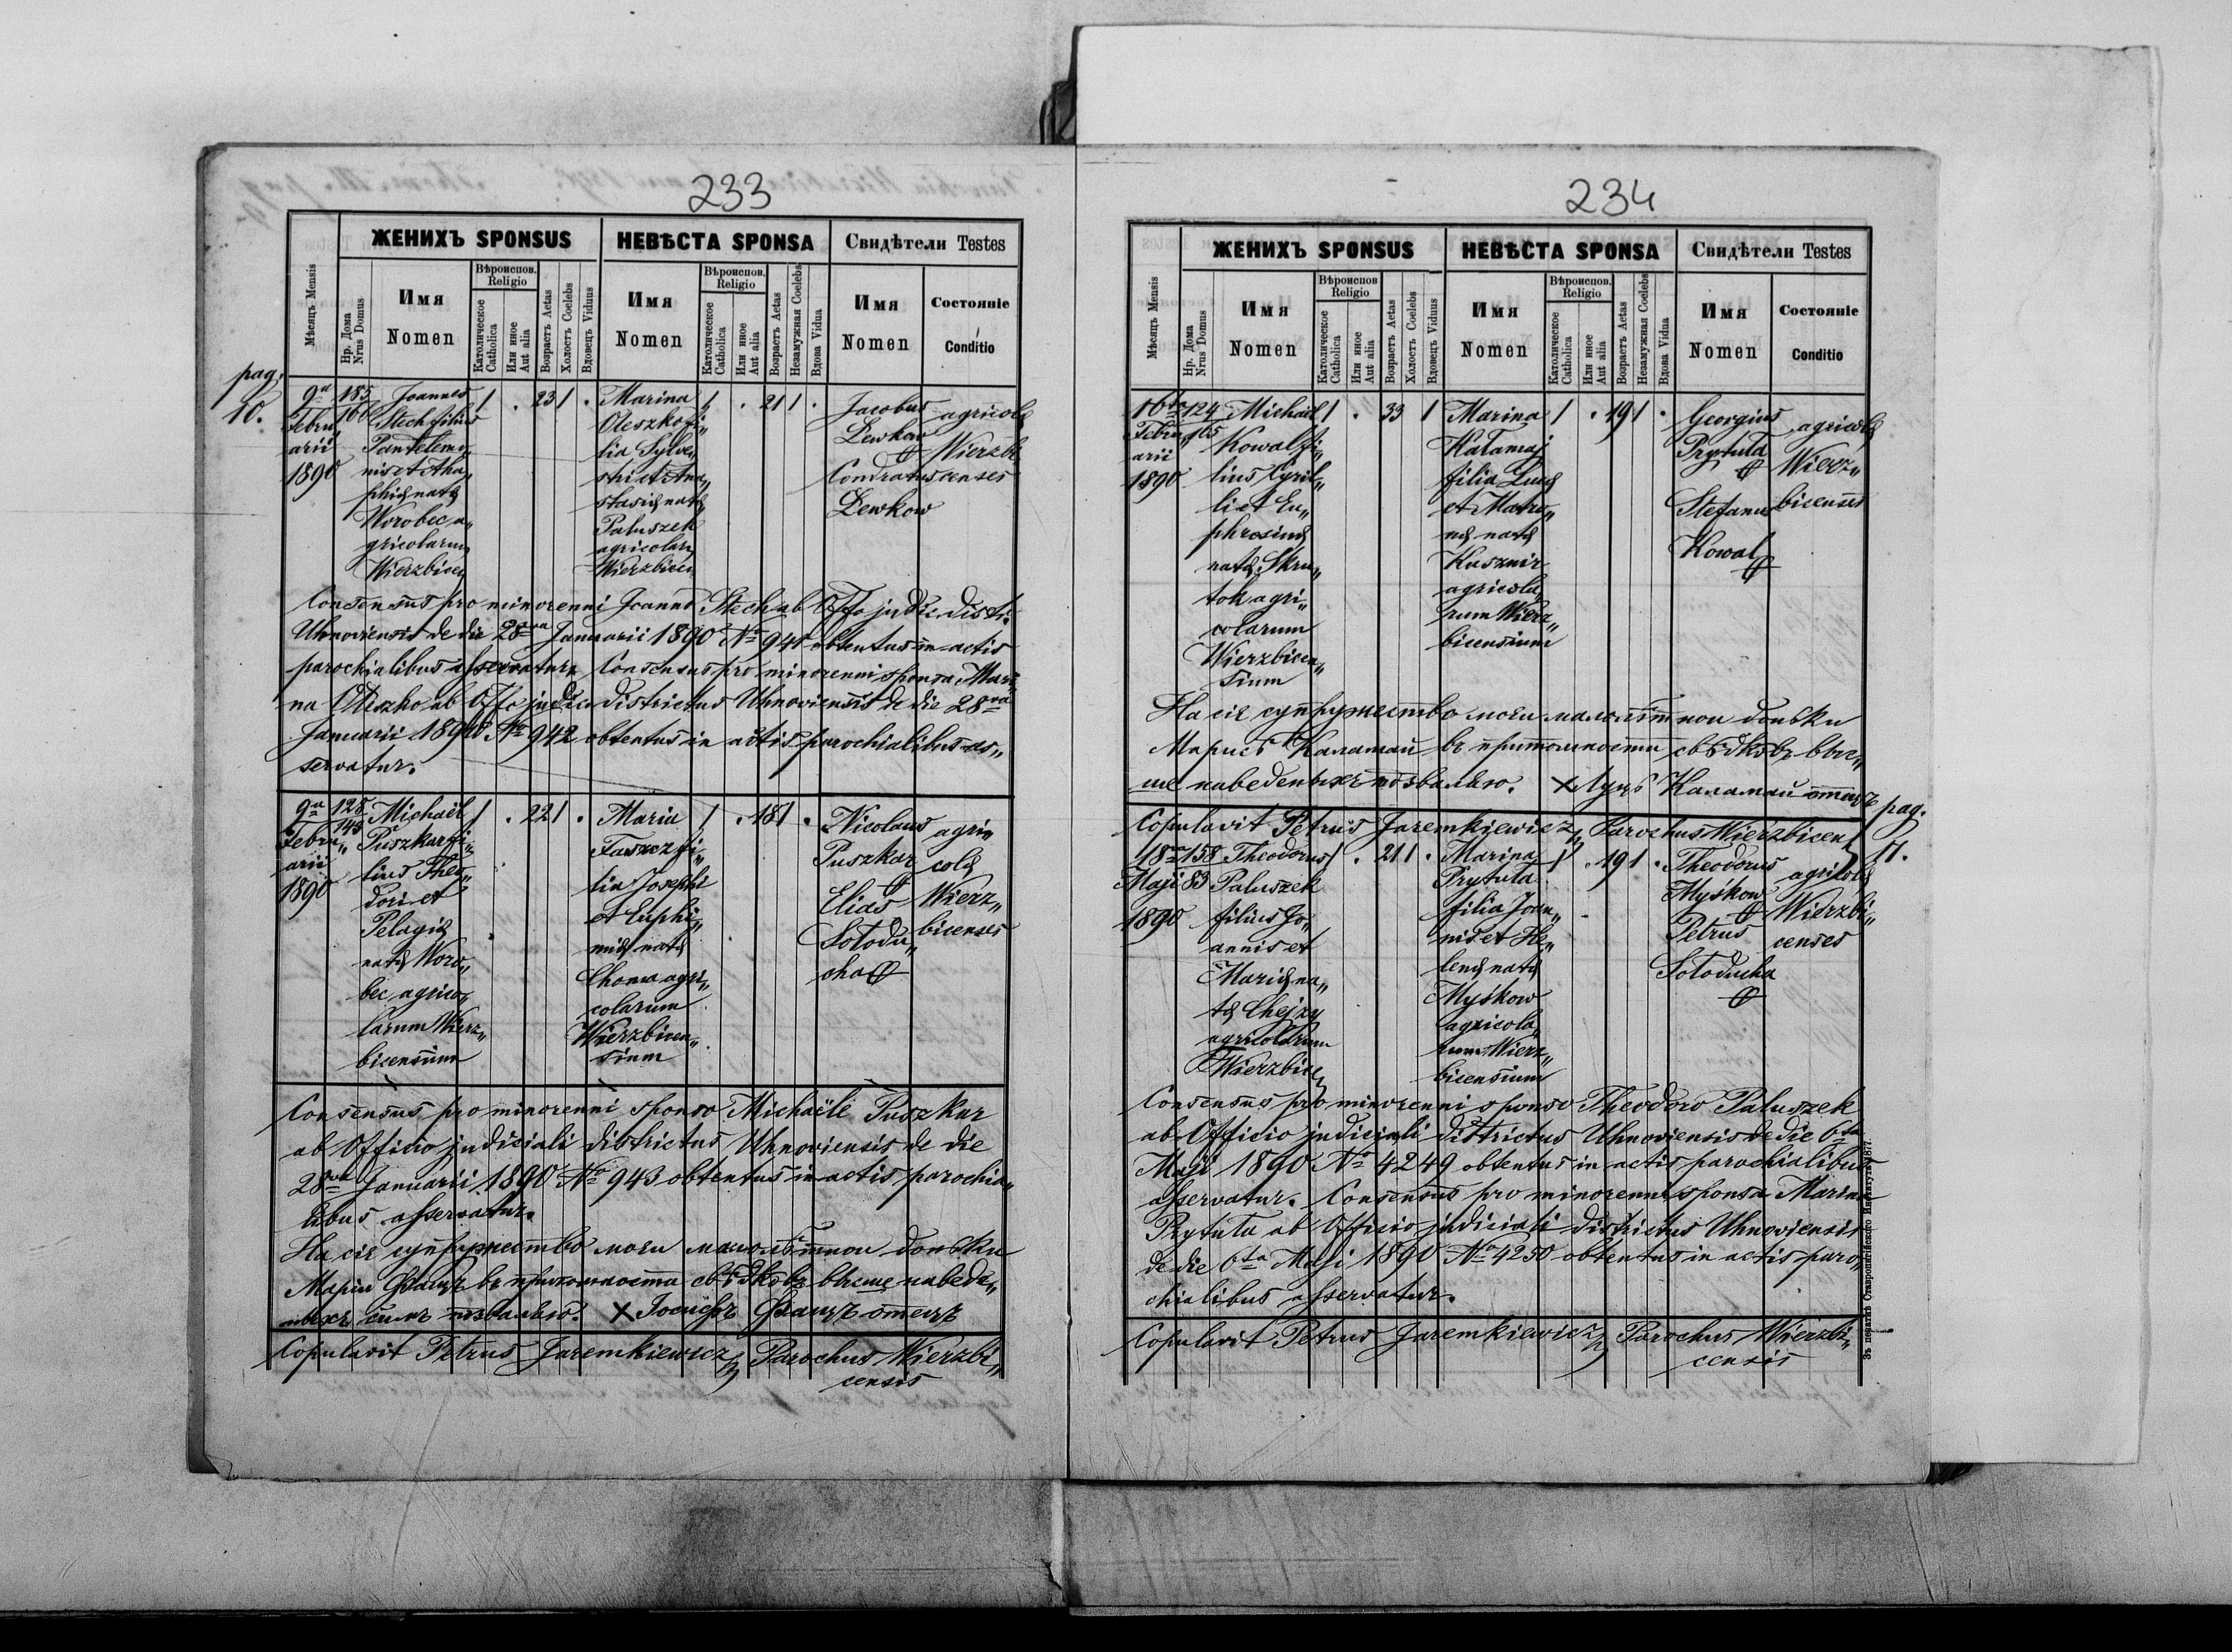 233
ЖЕНИХЪ SPONSUS
НЕВѢСТА SPONSA
Свидѣтели Testes
Мѣсяцъ Mensis
Нр. Дома Nrus Domus
Имя Nomen
Вѣроиспов. Religio
Католическое Catholica
Или иное Aut alia
Возрастъ Aetas
Холостъ Coelebs
Вдовецъ Viduus
Имя Nomen
Вѣроиспов. Religio
Католическое Catholica
Или иное Aut alia
Возрастъ Aetas
Незамужная Coelebs
Вдова Vidua
Имя Nomen
Состояніе Conditio
pag.
10.
9na
Febru„
arii
1890
185
166
Joannes
Stech filius
Pantelemo„
nis et Aga„
phiæ natæ
Worobec a„
gricolarum
Wierzbicen
1 . 23 1 .
Marina
Oleszko fi„
lia Sylve„
stri et Ana„
stasiæ natæ
Paluszek
agricolarum
Wierzbicen
1 . 21 1 .
Jacobus
Lewkow
Condratus
Lewkow
agricolæ
Wierzbi
censes
Consensus pro minorenni Joanne Stech ab Offo judic. distri.
Uhnoviensis de die 28va Januarii 1890 No 941 obtentus in actis
parochialibus asservatur. Consensus pro minorenni sponsa Mari„
na Oleszko ab Offo judic. districtus Uhnoviensis de die 28va
Januarii 1890 No 942 obtentus in actis parochialibus as„
servatur.
9na
Febru„
arii
1890
128
145
Michaël
Puszkar fi„
lius Theo„
dori et
Pelagiæ
natæ Woro„
bec agrico„
larum Wierz„
bicensium
1 . 22 1 .
Maria
Faszcz fi„
lia Josephi
et Euphi„
miæ natæ
Choma agri„
colarum
Wierzbicen„
sium
1 . 18 1 .
Nicolaus
Puszkar
Elias
Sołodu„
cha
agri„
colæ
Wierz„
bicenses
Consensus pro minorenni sponso Michaële Puszkar
ab Officio judiciali districtus Uhnoviensis de die
28va Januarii 1890 No 943 obtentus in actis parochia„
libus asservatur.
На сіе супружество моеи малолѣтнои доньки
Маріи въ притомности свѣдковъ выше наведе„
ныхъ позваляю. × Іосифъ отецъ
Copulavit Petrus Jaremkiewicz Parochus Wierzbi„
censis
234
ЖЕНИХЪ SPONSUS
НЕВѢСТА SPONSA
Свидѣтели Testes
Мѣсяцъ Mensis
Нр. Дома Nrus Domus
Имя Nomen
Вѣроиспов. Religio
Католическое Catholica
Или иное Aut alia
Возрастъ Aetas
Холостъ Coelebs
Вдовецъ Viduus
Имя Nomen
Вѣроиспов. Religio
Католическое Catholica
Или иное Aut alia
Возрастъ Aetas
Незамужная Coelebs
Вдова Vidua
Имя Nomen
Состояніе Conditio
16ta
Febru„
arii
1890
124
165
Michaël
Kowal fi„
lius Cyril„
li et Eu„
phrosinæ
natæ Skru„
tok agri„
colarum
Wierzbicen„
sium
1 . 33 1
Marina
Kałamaj
filia Lucæ
et Matro„
næ natæ
Kusznir
agricola„
rum Wierz„
bicensium
1 . 19 1 .
Georgius
Prytuła
Stefanus
Kowal
agricolæ
Wierz„
bicenses
На сіе супружество моеи малолѣтнои доньки
Марисѣ Каламай въ притомности свѣдковъ вы„
ше наведеныхъ позваляю. × Луцъ Каламай отецъ
Copulavit Petrus Jaremkiewicz Parochus Wierzbicen
pag.
11.
18va
Maji
1890
158
83
Theodorus
Paluszek
filius Jo„
annis et
Mariæ na„
tæ Chejzy
agricolarum
Wierzbicen
1 . 21 1 .
Marina
Prytuła
filia Joan„
nis et He„
lenæ natæ
Myśkow
agricola„
rum Wierz„
bicensium
1 . 19 1 .
Theodorus
Myśkow
Petrus
Sołoducha
agricolæ
Wierzbi„
censes
Consensus pro minorenni sponso Theodoro Paluszek
ab Officio judiciali districtus Uhnoviensis de die 6ta
Maji 1890 No 4249 obtentus in actis parochialibus
asservatur. Consensus pro minorenni sponsa Marina
Prytuła ab Officio judiciali districtus Uhnoviensis
de die 6ta Maji 1890 No 4250 obtentus in actis paro„
chialibus asservatur.
Copulavit Petrus Jaremkiewicz Parochus Wierzbi„
censis
Зъ печатнѣ Ставропигійского Института 1877.